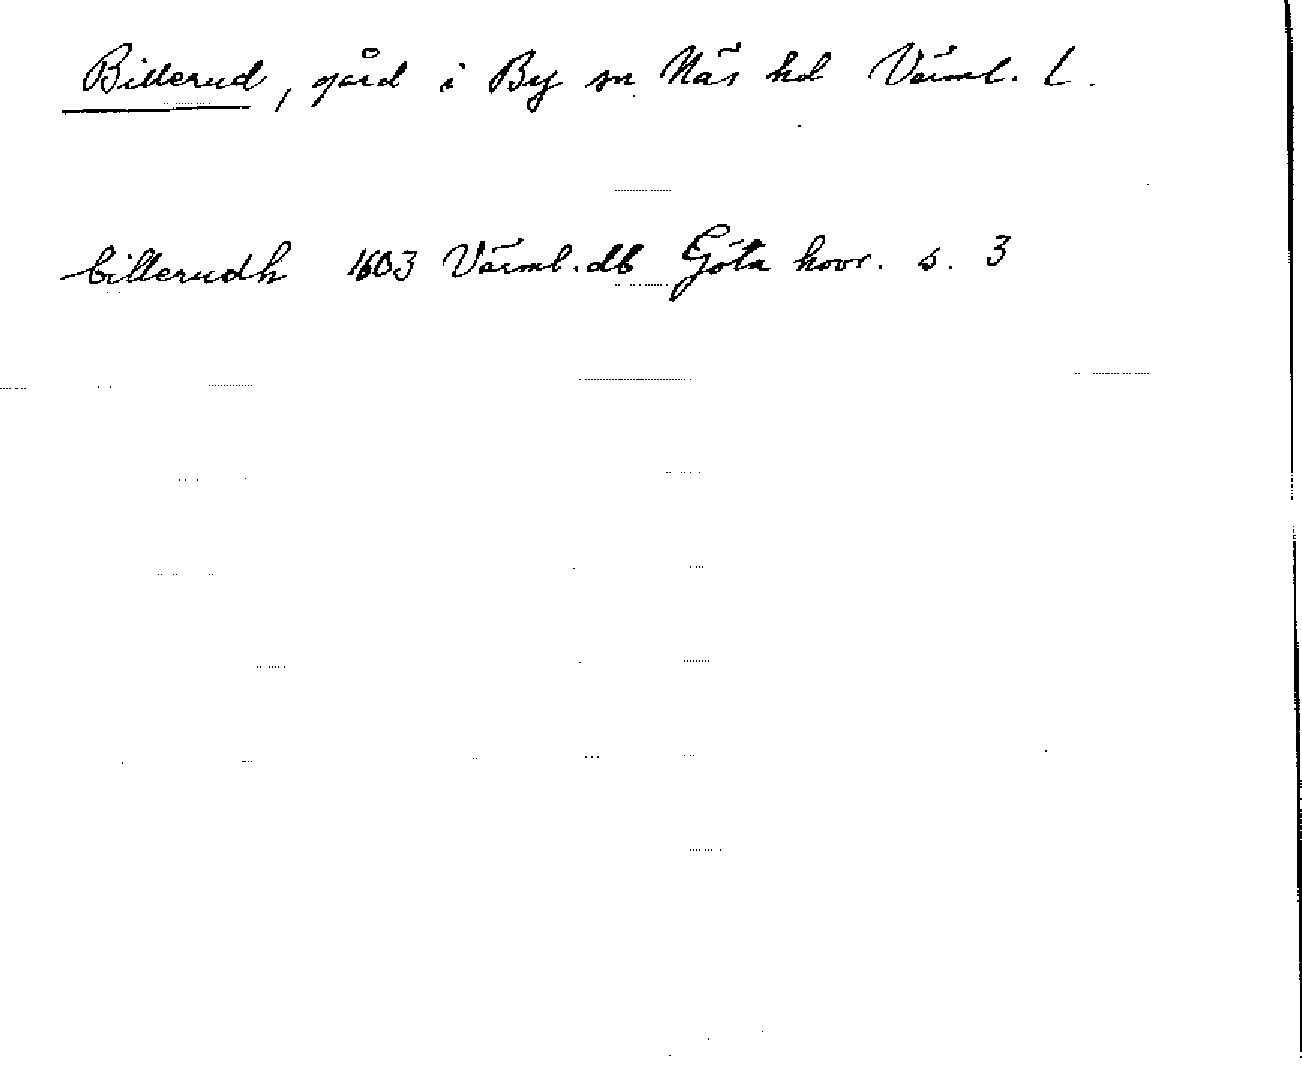 Billerud, gård i By sn Näs hd Värml. l.
billerudh 1603 Värml.db Göta hovr. s. 3